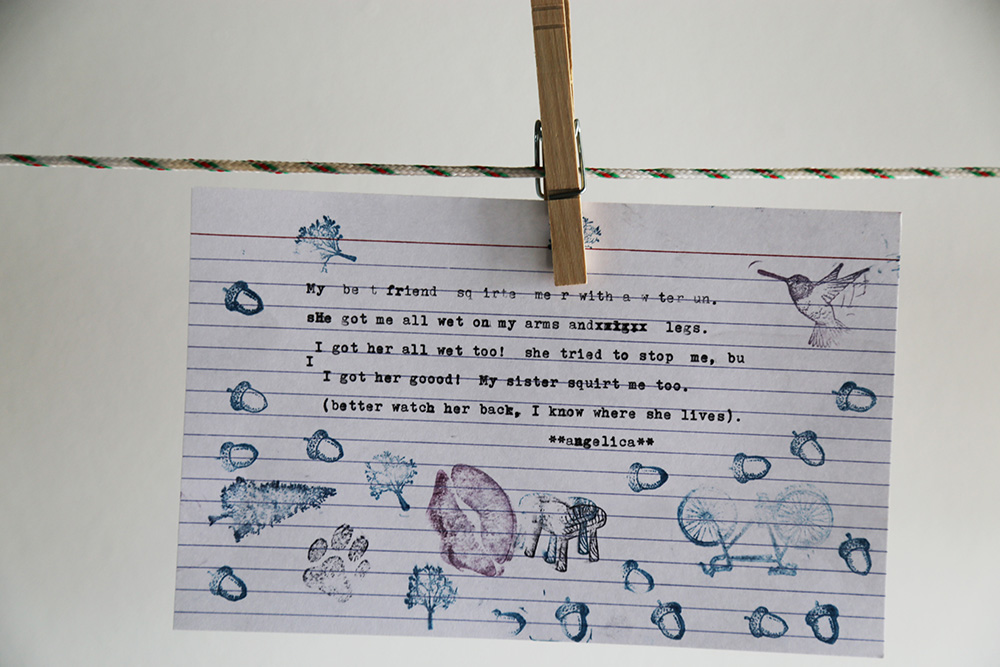 My be t friend sq irts me r with a w ter un.
sHe got me all wet on my arms andxxigxx legs.
I got her all wet too! she tried to stop me, bu
I
I got her goood! My sister squirt me too.
(better watch her back, I know where she lives).
**angelica**